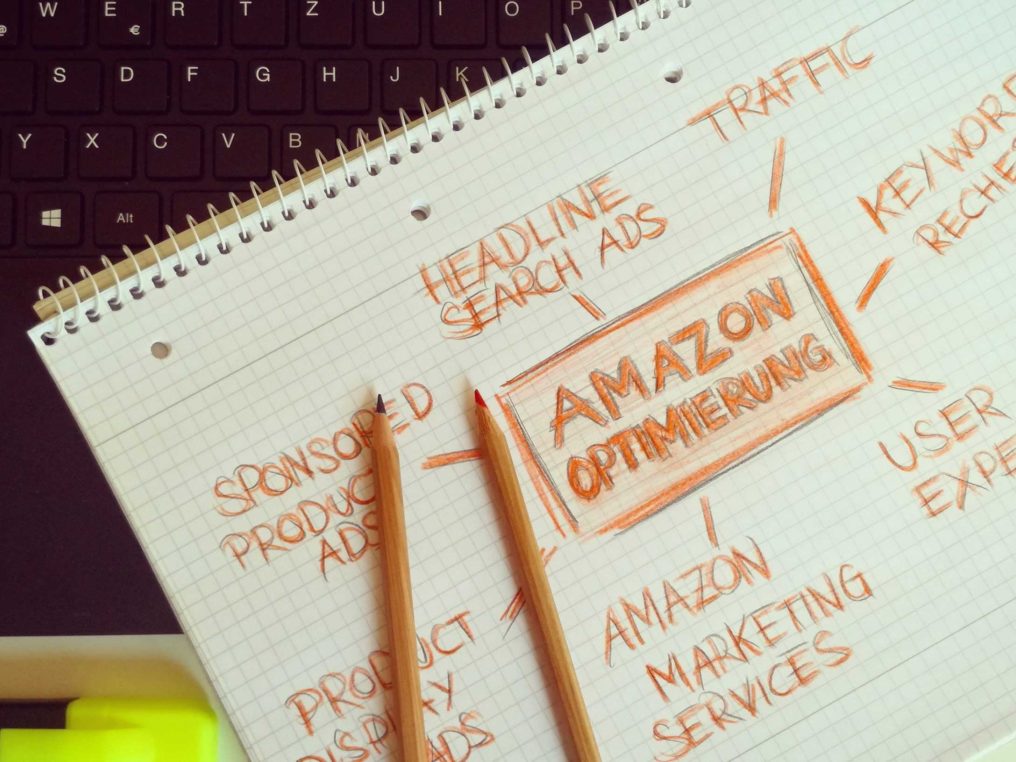 W E R T Z U I O P
@ €
S D F G H J K
Y X C V B
Alt
TRAFFIC
KEYWOR
RECHE
HEADLINE
SEARCH ADS
AMAZON
OPTIMIERUNG
SPONSORED
PRODUCT
ADS
USER
EXPE
AMAZON
MARKETING
SERVICES
PRODUCT
DISPLAY
ADS